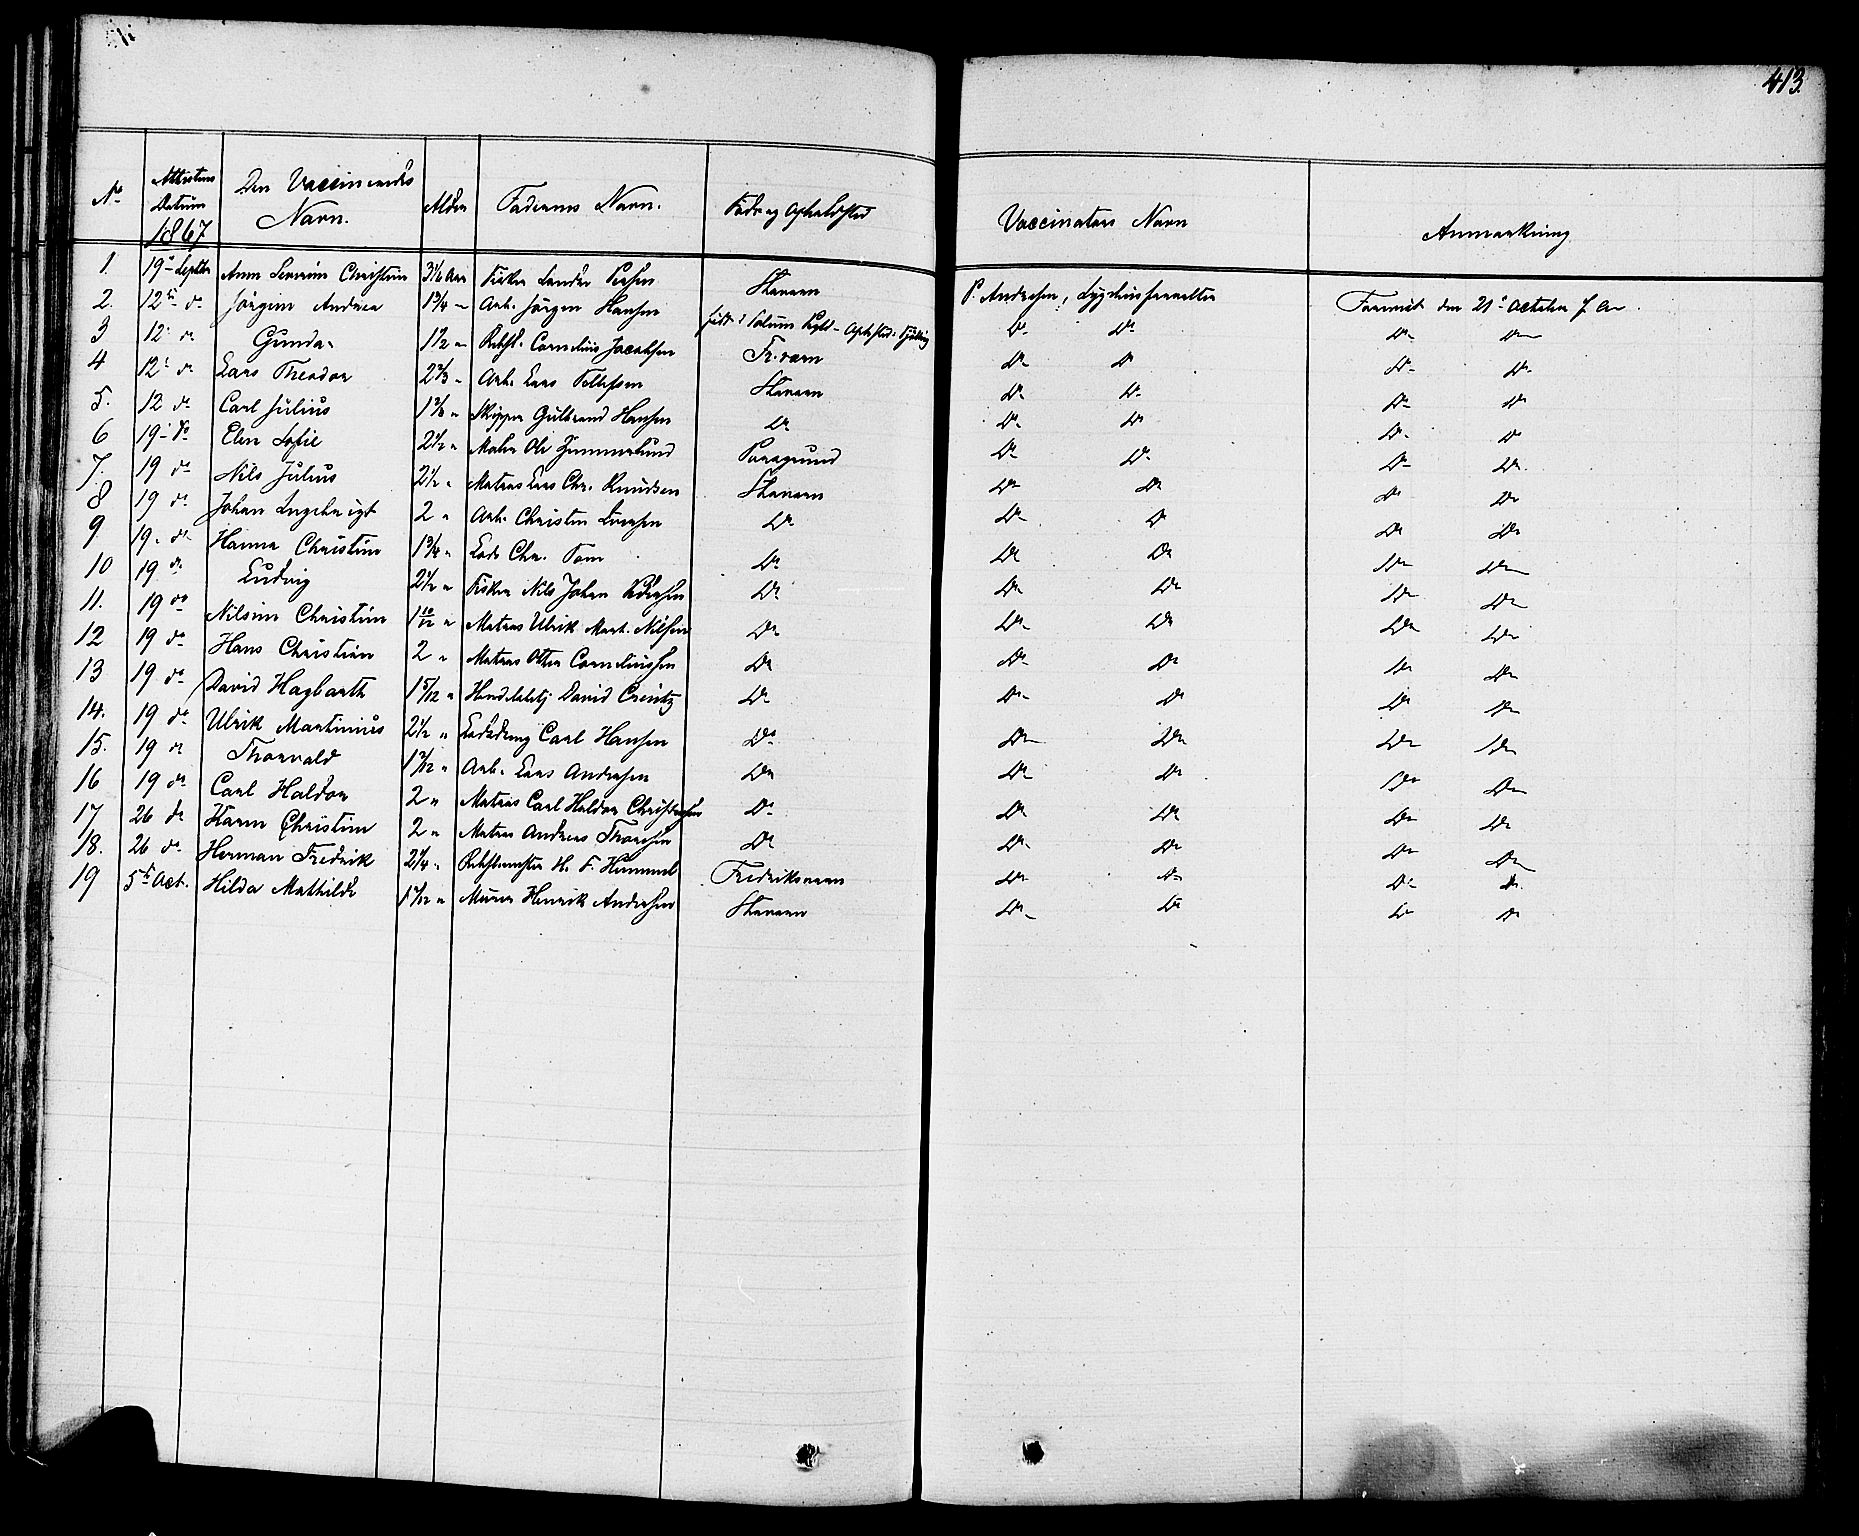 413.
No Attestens Datum 1867 Den Vaccineredes Navn. Alder Faderens Navn. Føde og Opholdsted Vaccinators Navn Anmærkning
1. 19de Septbr Anne Severine Christine 3 1/6 Aar Fisker Stavern P. Andresen, Sygehusforvalter Foreviist den 21de October f. Aar.
2. 12te do Jörgen Andrea 1 3/4 " Arb. Jörgen Hansen født i Solum Opholdsted: Do Do Do Do
3 12te do Gunda 1 1/2 " Cornelius Jacobsen Fr.værn Do Do Do Do
4 12te do Lars Theodor 2 2/3 " Arb. Lars Tollefsen Stavern Do Do Do Do
5. 12 do Carl Julius Skipper Gulbrand Hansen Do Do Do Do Do
6 19 do Elen Sofie 2 1/2 " Maler Ole Porsgrund Do Do Do Do
7. 19 do Nils Julius 2 1/2 " Matros Lars Chr. Knudsen Stavern Do Do Do Do
8 19 do Johan Ingebregt 2 " Arb. Christen Do Do Do Do Do
9 19 do Hanna Christine 1 3/4 " Lods Chr. Do Do Do Do Do
10 19 do Ludvig 2 1/2 " Fisker Nils Johan Pedersen Do Do Do Do Do
11. 19 do Nilsine Christine 1 10/12 " Matros Ulrik Mart. Nilsen Do Do Do Do Do
12 19 do Hans Christian 2 " Matros Otter Corneliussen Do Do Do Do Do
13 19 do David Hagbarth 1 5/12 " David Creutz Do Do Do Do Do
14. 19 do Ulrik Martinius 2 1/2 " Lodsdreng Carl Hansen Do Do Do Do Do
15. 19 do Thorvald Arb. Lars Andersen Do Do Do Do Do
16 19 do Carl Haldor 2 " Matros Carl Haldor Christensen Do Do Do Do Do
17 26 do Karen Christine 2 " Matros Andreas Thoresen Do Do Do Do Do
18. 26 do Herman Fredrik 2 1/4 " H. F. Hummel Fredriksværn Do Do Do Do
19 5te Oct. Hilda Mathilde Murer Henrik Andersen Stavern Do Do Do Do